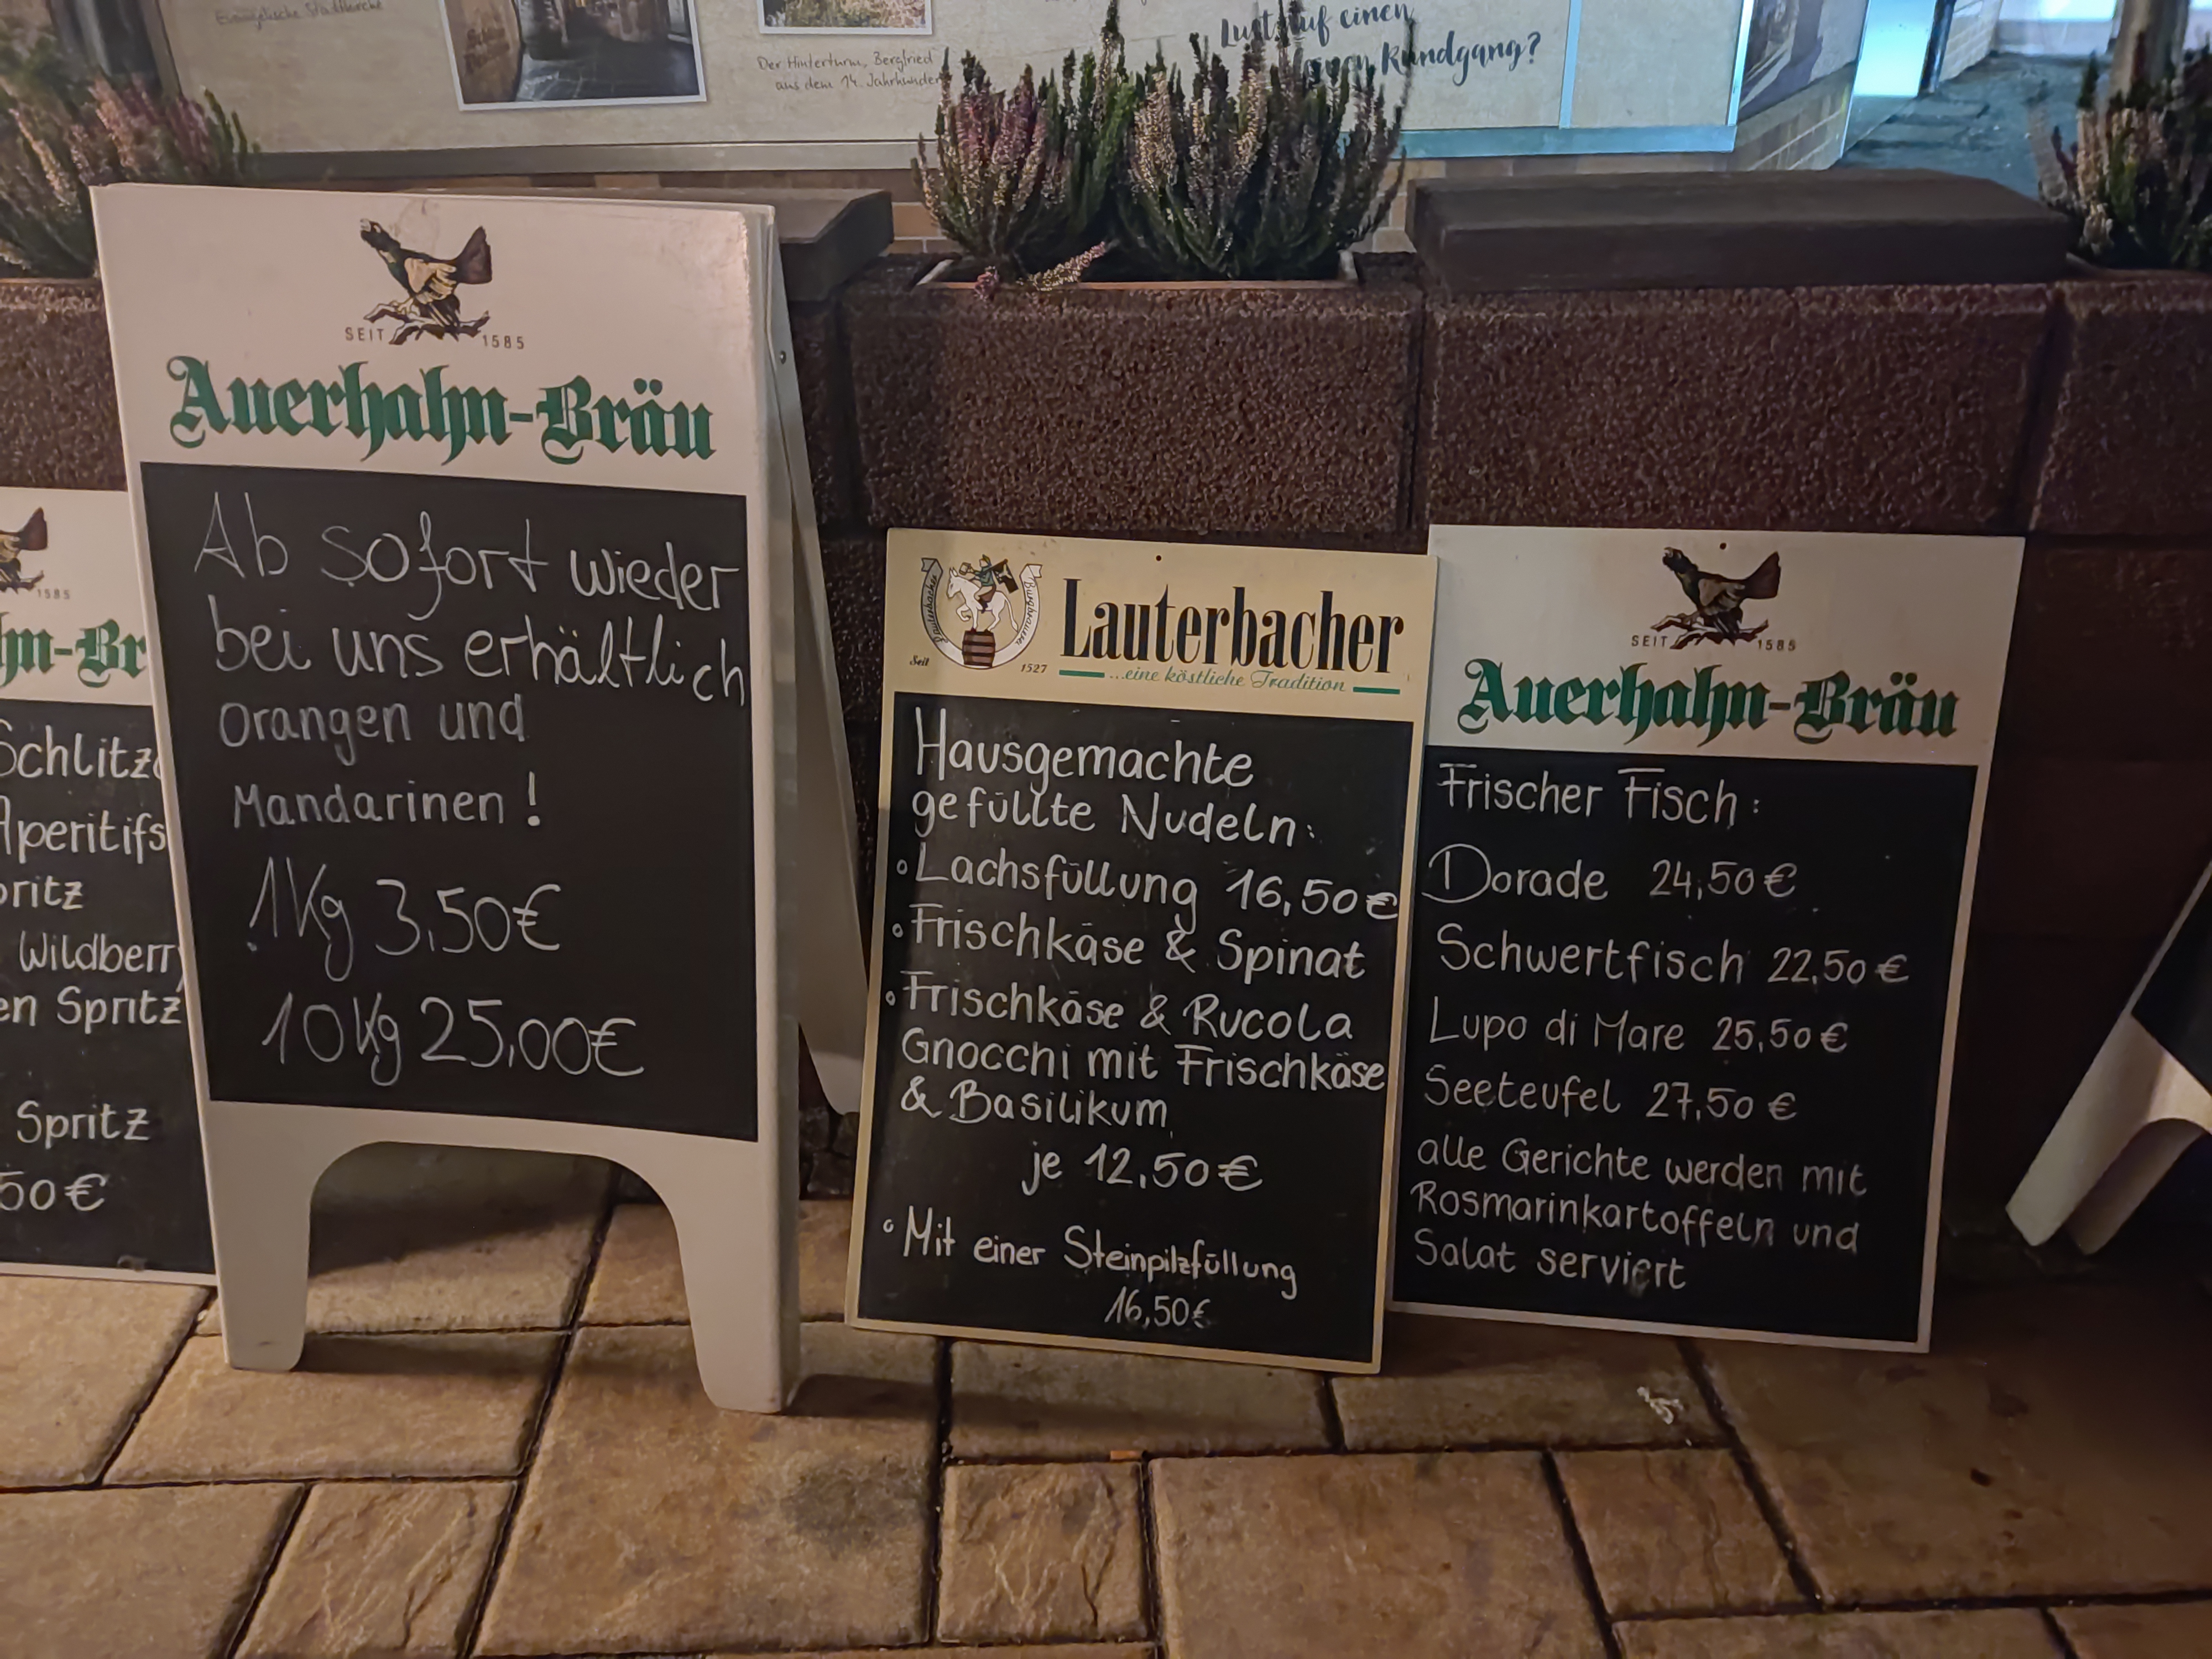 Evangelische Stadtkirche
Der Hinterturm, Bergfried
aus dem 14. Jahrhundert
Lust auf einen
Rundgang?
SEIT 1585
Auerhahn-Bräu
Ab sofort wieder
bei uns erhältlich
Orangen und
Mandarinen !
1Kg 3,50€
10Kg 25,00€
1585
Aperitifs
Wildberry
Spritz
Spritz
50€
Lauterbacher Burgbrauerei
Seit 1527
Lauterbacher
...eine köstliche Tradition
Hausgemachte
gefüllte Nudeln:
Lachsfüllung 16,50€
Frischkäse & Spinat
Frischkäse & Rucola
Gnocchi mit Frischkäse
& Basilikum
je 12,50€
Mit einer Steinpilzfüllung
16,50€
SEIT 1585
Auerhahn-Bräu
Frischer Fisch :
Dorade 24,50€
Schwertfisch 22,50€
Lupo di Mare 25,50€
Seeteufel 27,50€
alle Gerichte werden mit
Rosmarinkartoffeln und
Salat serviert